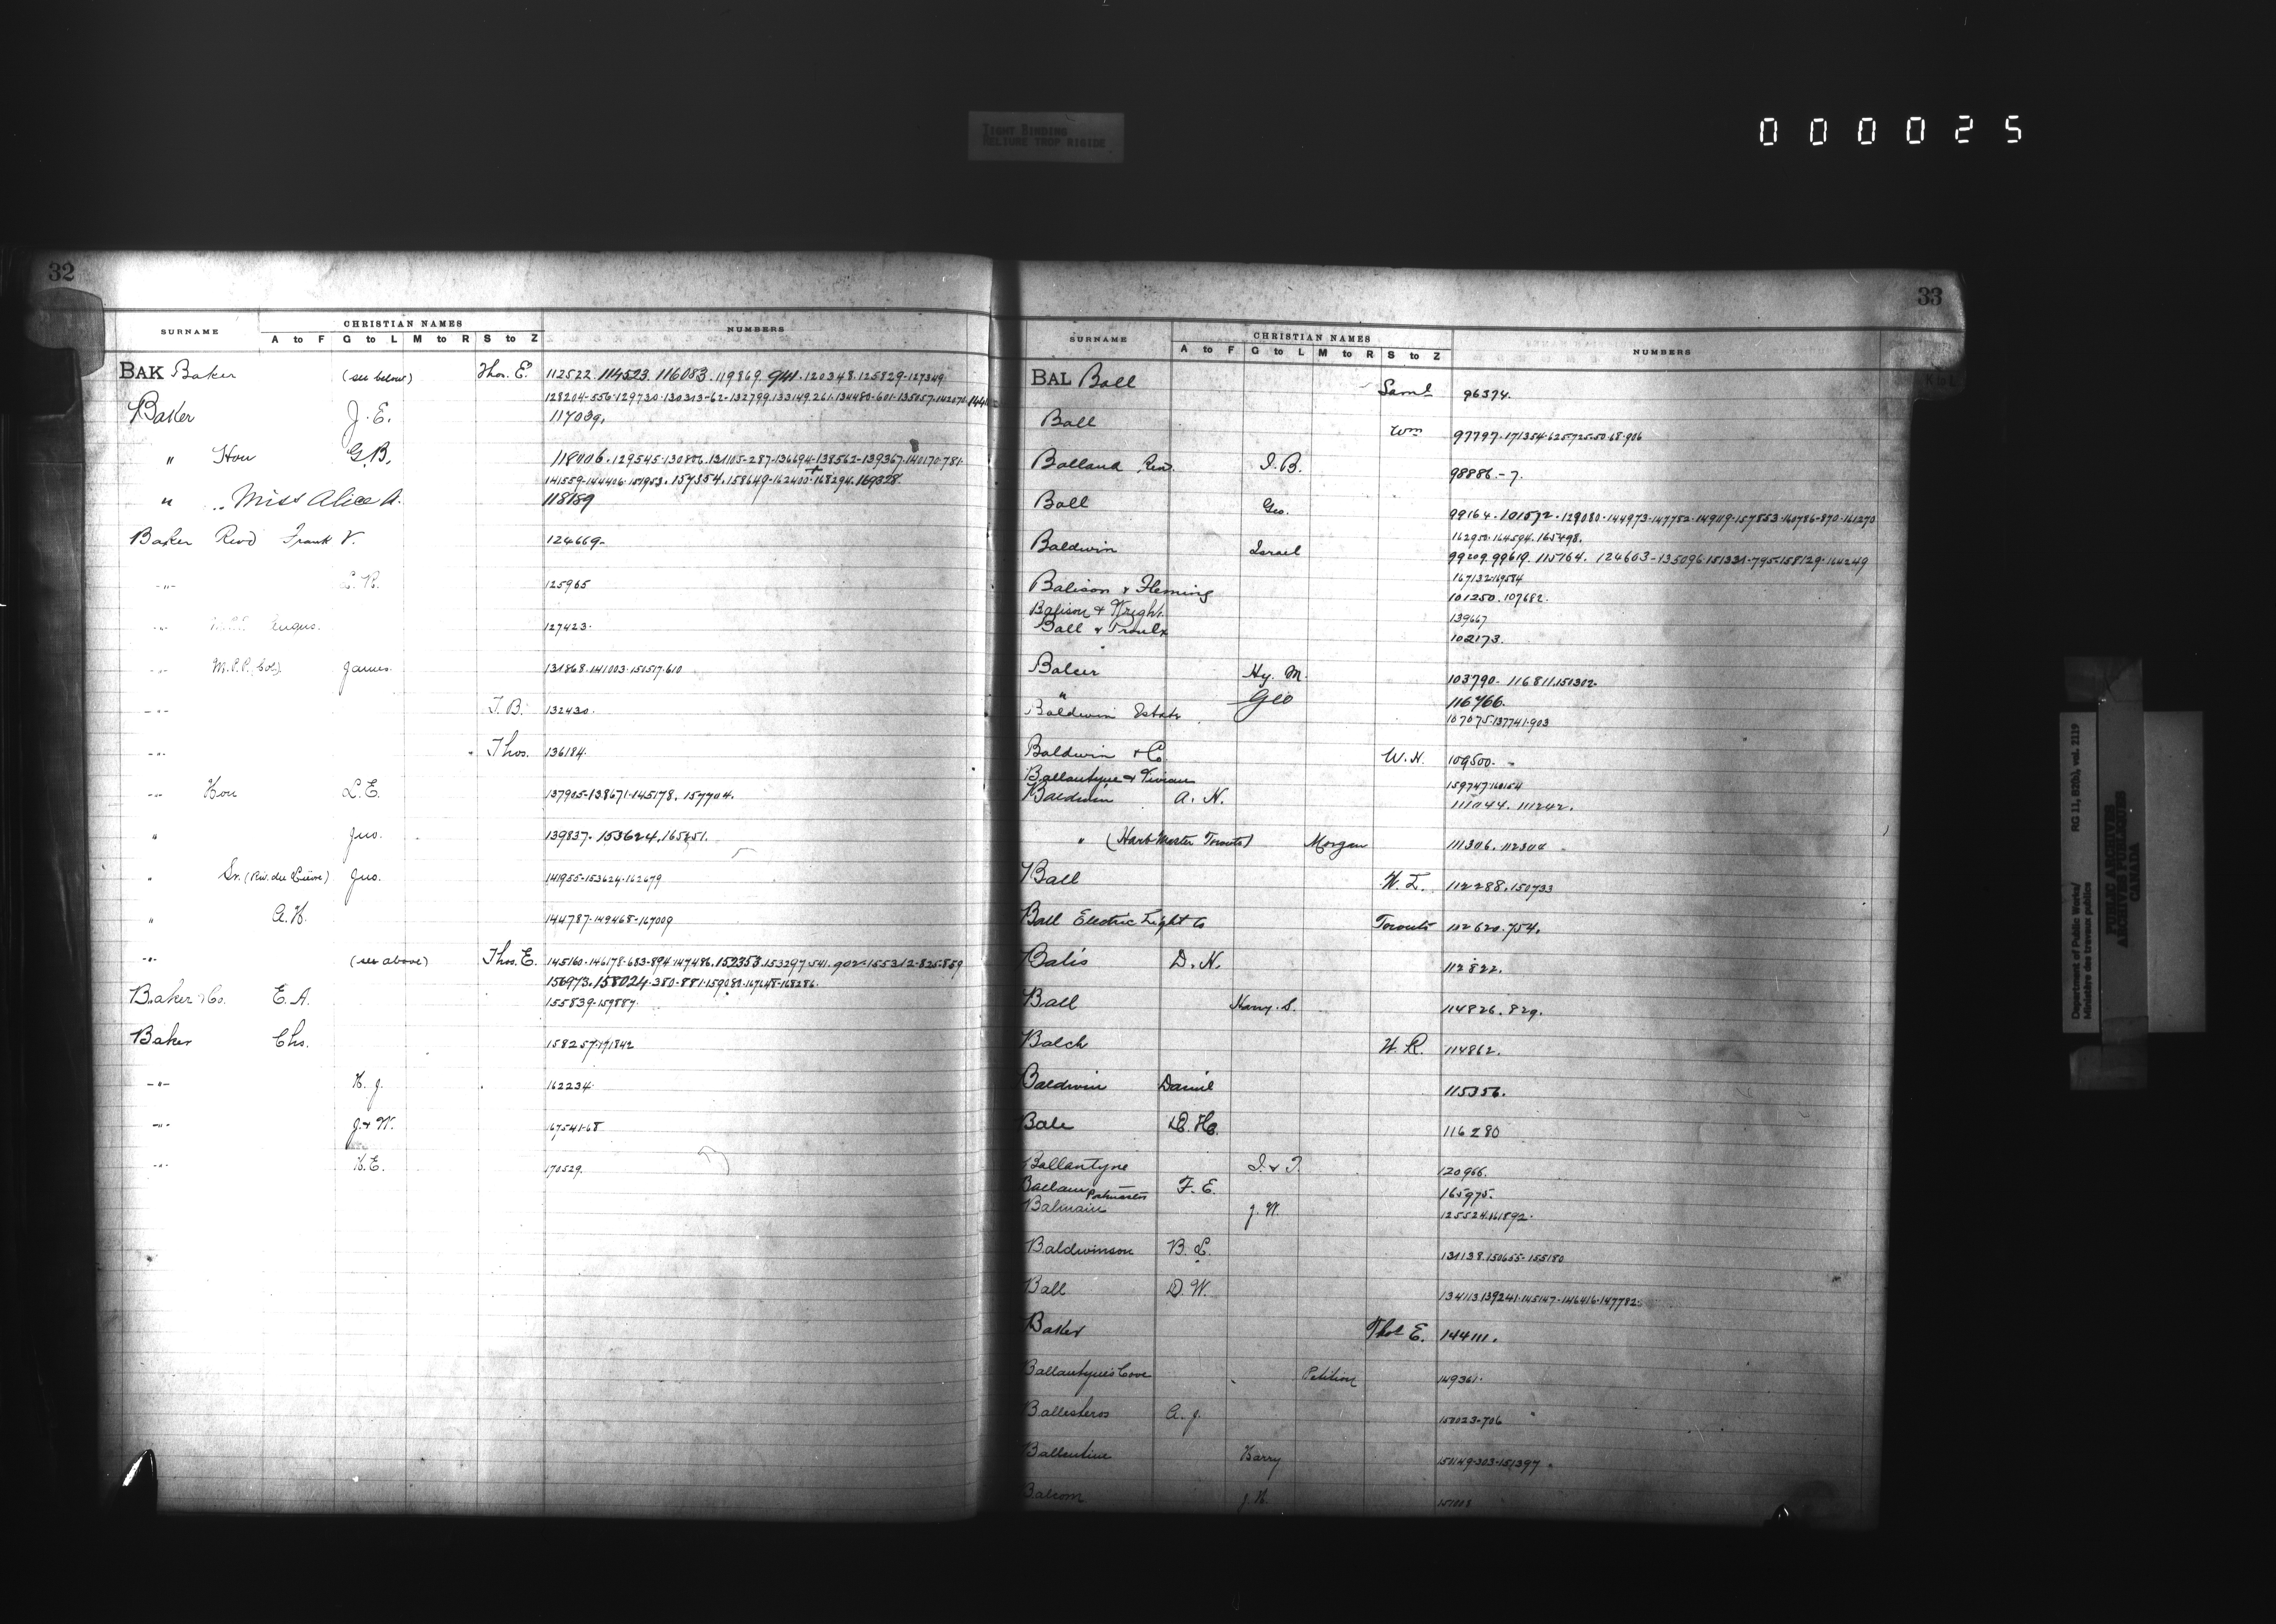 TIGHT BINDING
RELIURE TROP RIGIDE
000025
32
SURNAME CHRISTIAN NAMES NUMBERS
A to F G to L M to R S to Z
BAK Baker (see below) Thos. E. 112522. 114523. 116083. 119869. 941. 120348. 125829-127349
128204-556-129730-130313-62-132799.133149.261.134480-601-135057-142070
Baker J. E. 117039.
" Hon G.B. 118006. 129545-130806. 131105-287-136694-138562-139367-140170-781
141559-144406. 151953. 157354. 158649-162400-168294. 169328.
" Miss Alice A. 118189
Baker Revd Frank V. 124669-
-"- 125965
-"- Angus. 127423.
-"- M.P.P. James. 131868.141003.151517.610
-"- T. B. 132430.
-"- Thos. 136184.
-"- Hon L. E. 137905-138671-145178. 157704.
" Jno. 139837. 153624. 165851.
" Sr. (Riv. du Lièvre) Jno. 141955-153624-162679
" A. H. 144787-149468-167009
-"- (see above) Thos. E. 145160.146178.683-894.147486. 152353.153297.541. 902-155312-825-859
156973. 158024.380-881.159080.167648-168286.
Baker & Co. E. A. 155839-159887.
Baker Chs. 158257.171842
-"- H. J. 162234.
-"- J. & W. 167541-68
-"- H. E. 170529.
33
SURNAME CHRISTIAN NAMES NUMBERS
A to F G to L M to R S to Z
BAL Ball Saml 96374.
Ball Wm 97797.171354.625.725.50.68.906
Balland Rev. J. B. 98886.-7.
Ball Geo. 99164. 101572. 129080.144973-147782.149119-157853.160786-870.161270
162950.164594.165498.
Baldwin Israel 99209.99619. 115764. 124603-135096.151331-795-158129.164249
167132.169584
Balison & Fleming 101250.107682.
Balison & Wright 139667
Ball & Proulx 102173.
Balcer Hy. M. 103790- 116811.150302.
" Geo 116766.
Baldwin Estate 107075.137741.903
Baldwin & Co W. H. 109500.
Ballantyne & Vivian 159747.160154
Baldwin A. N. 111044. 111242.
" (Harb Master Toronto) Morgan 111306. 112304
Ball W. I. 112288.150733
Ball Electric Light Co Toronto 112620.754.
Balis D. N. 112822.
Ball Harry. S. 114826. 829.
Balch W. R. 114862.
Baldwin Daniel 115356.
Bale D. H. 116280
Ballantyne J. & T. 120966.
Ballam Postmaster F. E. 165975.
Balmain J. W. 125524.161892.
Baldwinson B. L. 131138.150655-155180
Ball D. W. 134113.139241.145147-146416-147782.
Baker Thos E. 144111.
Ballantyne's Cove Petition 149361.
Ballesteros A. J. 150023-706
Ballentine Harry 151149-303-151397
Balcom J. H. 151018
Department of Public Works/ RG 11, B2(b), vol. 2119
Ministère des travaux publics
PUBLIC ARCHIVES
ARCHIVES PUBLIQUES
CANADA